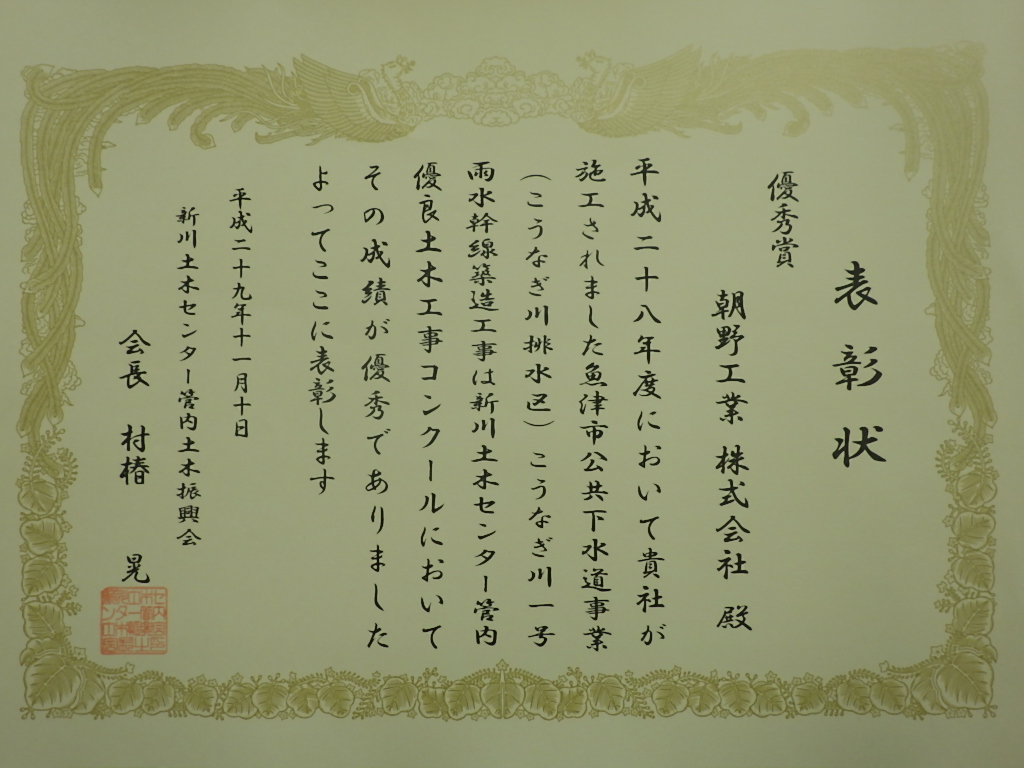 表彰状
優秀賞
朝野工業 株式会社 殿
平成二十八年度において貴社が
施工されました魚津市公共下水道事業
（こうなぎ川排水区）こうなぎ川一号
雨水幹線築造工事は新川土木センター管内
優良土木工事コンクールにおいて
その成績が優秀でありました
よってここに表彰します
平成二十九年十一月十日
新川土木センター管内土木振興会
会長 村椿 晃